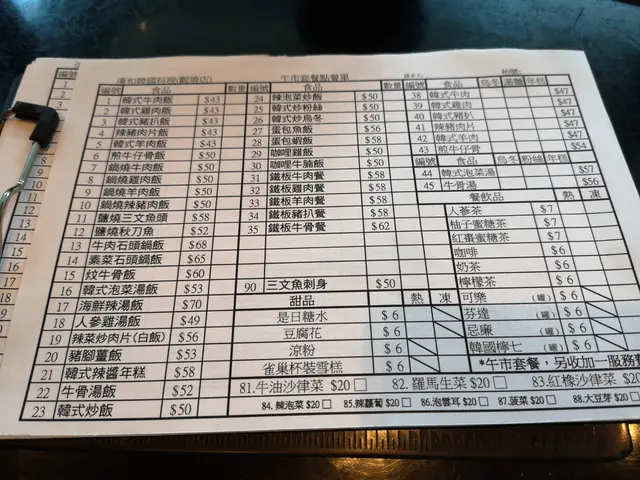 漢和韓國料理(觀塘店) 午市套餐點餐單
編號 食品 數量
1 韓式牛肉飯 $43
2 韓式雞肉飯 $43
3 韓式豬扒飯 $43
4 辣豬肉片飯 $43
5 韓式羊肉飯 $43
6 煎牛仔骨飯 $50
7 鍋燒牛肉飯 $58
8 鍋燒雞肉飯 $58
9 鍋燒羊肉飯 $58
10 鍋燒辣豬肉飯 $58
11 鹽燒三文魚頭 $58
12 鹽燒秋刀魚 $52
13 牛肉石頭鍋飯 $68
14 素菜石頭鍋飯 $65
15 炆牛骨飯 $60
16 韓式泡菜湯飯 $53
17 海鮮辣湯飯 $70
18 人參雞湯飯 $49
19 辣菜炒肉片(白飯) $56
20 豬腳薑飯 $53
21 韓式辣醬年糕 $58
22 牛骨湯飯 $52
23 韓式炒飯 $50
編號 食品 數量
24 辣泡菜炒飯 $50
25 韓式炒粉絲 $50
26 韓式炒烏冬 $50
27 蛋包魚飯 $56
28 蛋包蝦飯 $58
29 咖哩雞飯 $50
30 咖哩牛腩飯 $50
31 鐵板牛肉餐 $58
32 鐵板雞肉餐 $58
33 鐵板羊肉餐 $58
34 鐵板豬扒餐 $58
35 鐵板牛骨餐 $62
90 三文魚刺身 $50
甜品 熱 凍
是日糖水 $6
豆腐花 $6
涼粉 $6
雀巢杯裝雪糕 $6
編號 食品 烏冬 湯麵 年糕
38 韓式牛肉 $47
39 韓式雞肉 $47
40 韓式豬扒 $47
41 辣豬肉片 $47
42 韓式羊肉 $47
43 煎牛仔骨 $54
編號 食品 烏冬 粉絲 年糕
44 韓式泡菜湯 $57
45 牛骨湯 $56
餐飲品 熱 凍
人參茶 $7
柚子蜜糖茶 $7
紅棗蜜糖茶 $7
咖啡 $6
奶茶 $6
檸檬茶 $6
可樂 (罐) $6
芬達 (罐) $6
忌廉 (罐) $6
韓國檸七 (罐) $6
*午市套餐，另收加一服務
81.牛油沙律菜 $20□ 82.羅馬生菜 $20□ 83.紅橡沙律菜 $20
84.辣泡菜 $20□ 85.辣蘿蔔 $20□ 86.泡雲耳 $20□ 87.菠菜 $20□ 88.大豆芽 $20